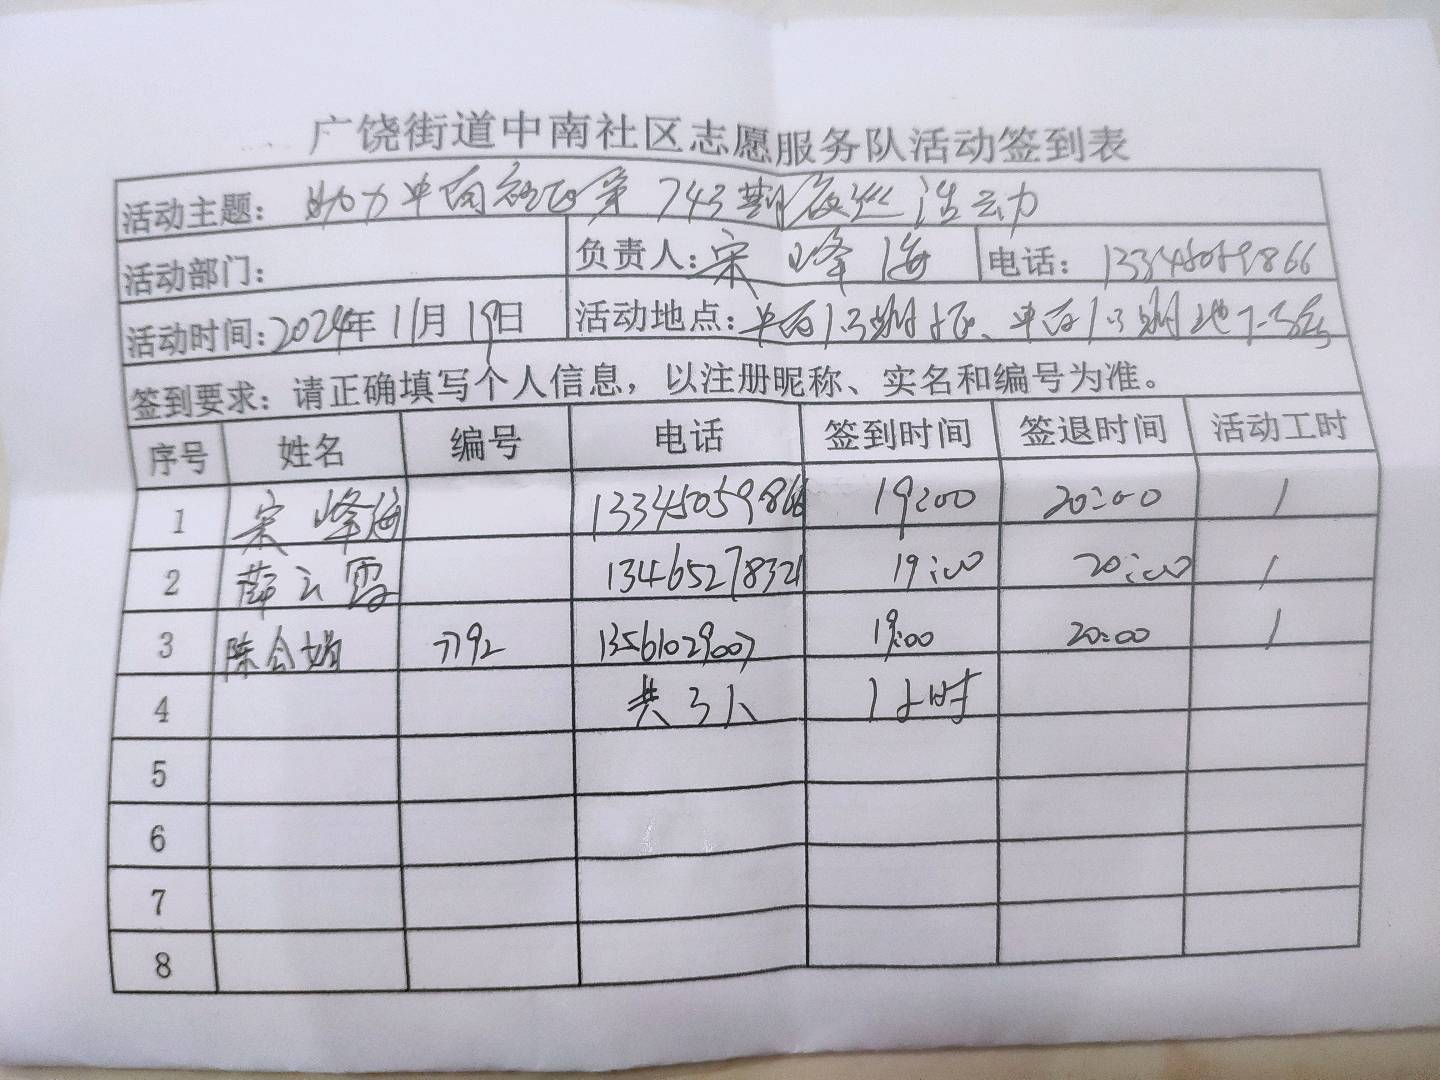 广饶街道中南社区志愿服务队活动签到表
活动主题： 助力中南社区第743期夜巡活动
活动部门： 负责人：宋峰海 电话：13345059866
活动时间：2024年11月19日 活动地点：中南1.3期
签到要求：请正确填写个人信息，以注册昵称、实名和编号为准。
序号 姓名 编号 电话 签到时间 签退时间 活动工时
1 宋峰海 13345059866 19:00 20:00 1
2 薛云霞 13465278321 19:00 20:00 1
3 陈会娟 7792 13561029007 19:00 20:00 1
4 共3人 1小时
5
6
7
8